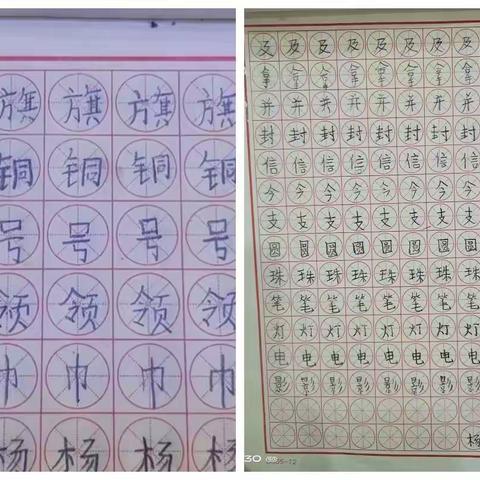 旗 旗 旗 旗
铜 铜 铜 铜
号 号 号 号
领 领 领 领
巾 巾 巾 巾
杨 杨 杨 杨
及 及 及 及 及 及 及 及
拿 拿 拿 拿 拿 拿 拿 拿
并 并 并 并 并 并 并 并
封 封 封 封 封 封 封 封
信 信 信 信 信 信 信 信
今 今 今 今 今 今 今 今
支 支 支 支 支 支 支 支
圆 圆 圆 圆 圆 圆 圆 圆
珠 珠 珠 珠 珠 珠 珠 珠
笔 笔 笔 笔 笔 笔 笔 笔
灯 灯 灯 灯 灯 灯 灯 灯
电 电 电 电 电 电 电 电
影 影 影 影 影 影 影 影
杨